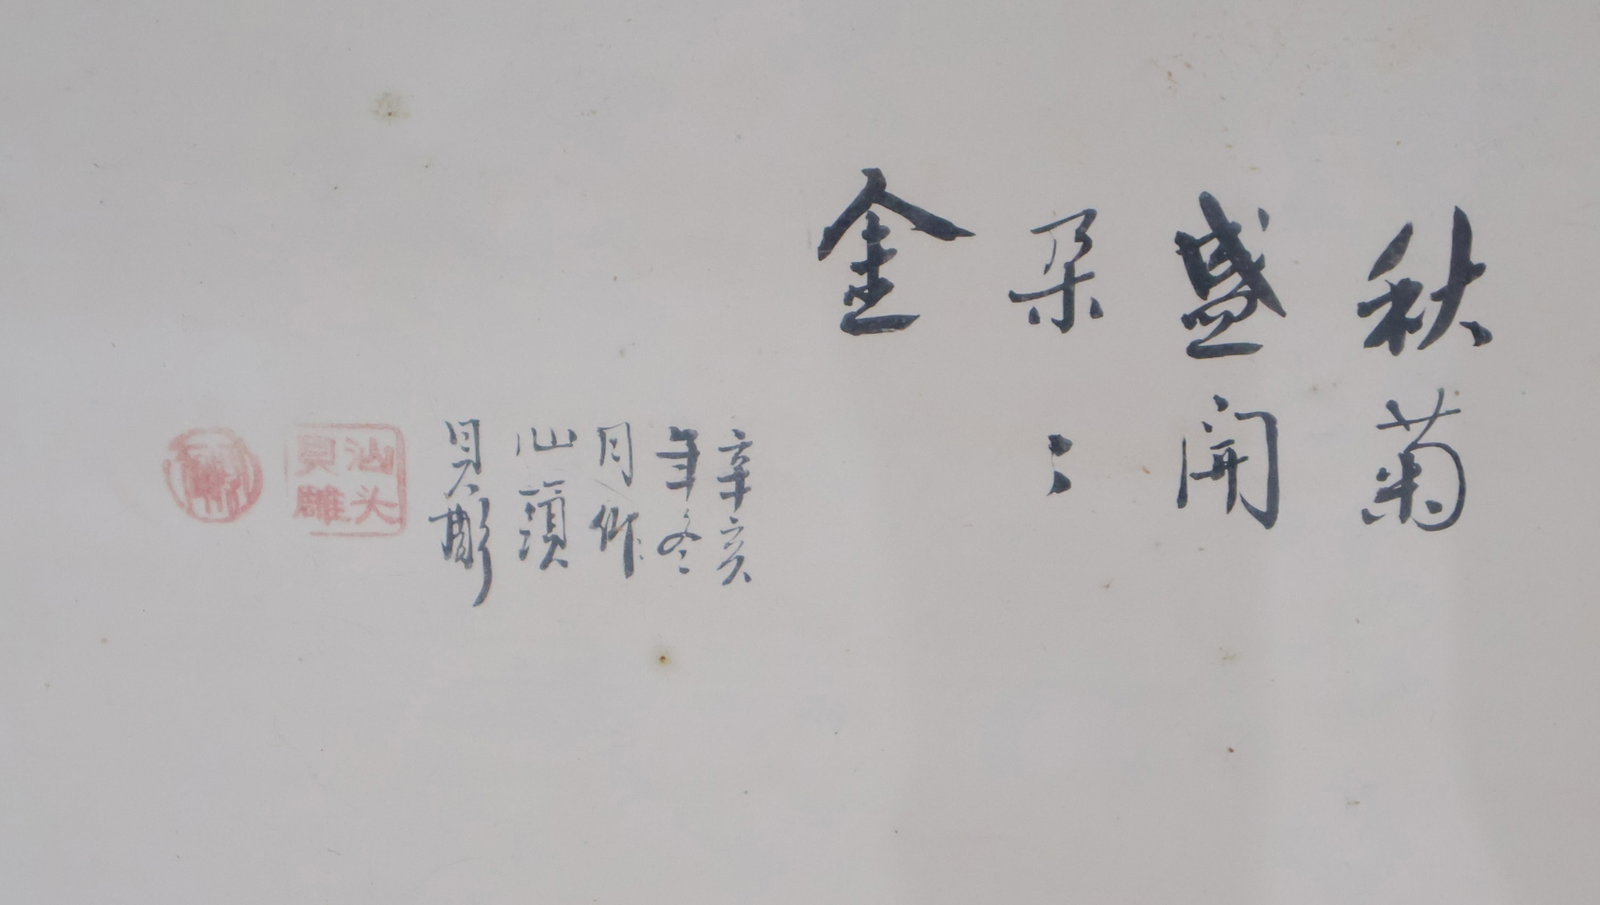 秋菊
盛開
朵〻
金
辛亥
年冬
月作
汕頭
貝彫
汕头
貝雕